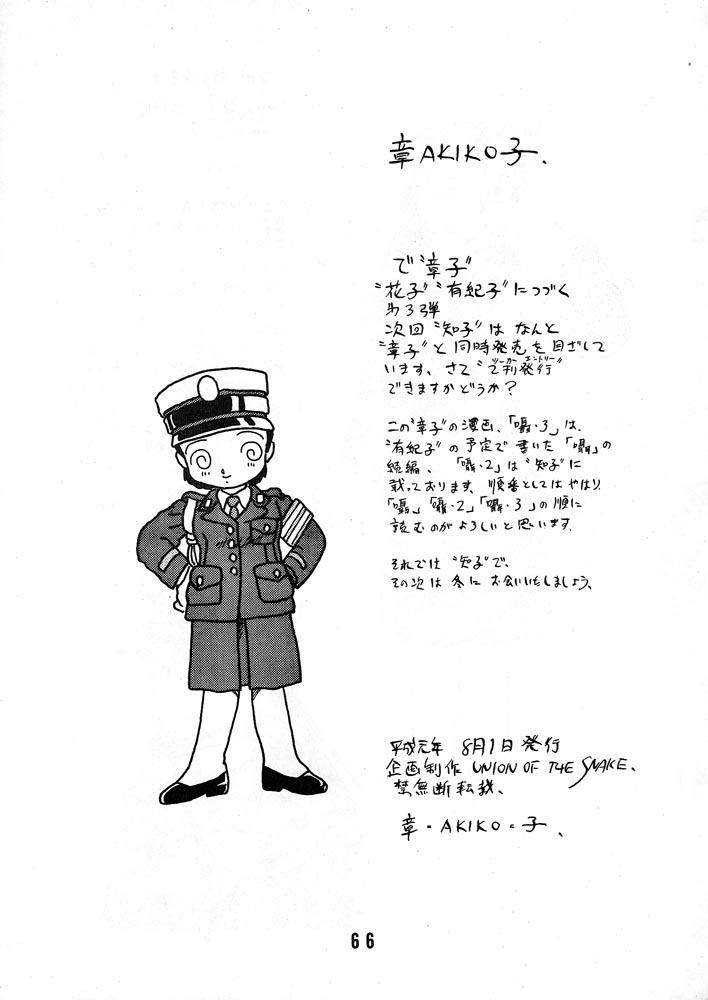 章AKIKO子、
で〝章子〟
〝花子〟〝有紀子〟につづく
㐧3弾
次回〝知子〟は なんと
〝章子〟と同時発売を目ざして
います、さて〝2判発行〟
ツーカー エントリー
できますかどうか?
この〝章子〟の漫画、「囁・3」は、
〝有紀子〟の予定で書いた「囁」の
続編、「囁・2」は〝知子〟に
載っております、順番としてはやはり
「囁」「囁・2」「囁・3」の順に
読むのがよろしいと思います、
それでは 〝知子〟で、
その次は 冬に お会いいたしましょう、
平成元年 8月1日 発行
企画制作 UNION OF THE SNAKE、
禁無断転載、
章・AKIKO・子、
66